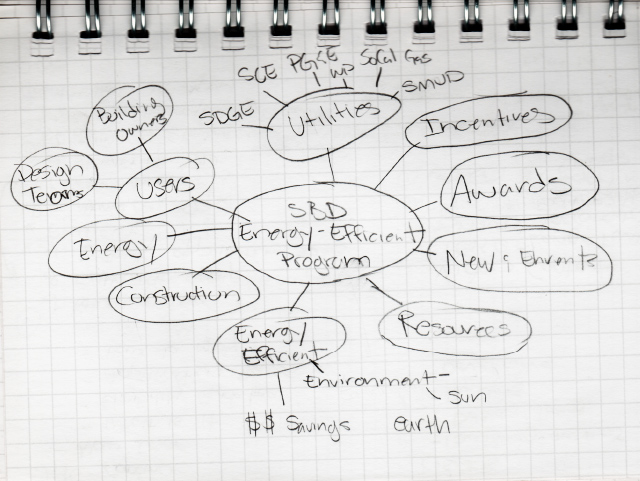 SCE PG&E WP SoCal Gas
SMUD
SDGE
Utilities
Building
Owners
Incentives
Design
Teams
Users
Awards
SBD
Energy-Efficient
Program
Energy
Construction
Resources
Energy
Efficient
Environment-
Sun
$$ Savings
earth